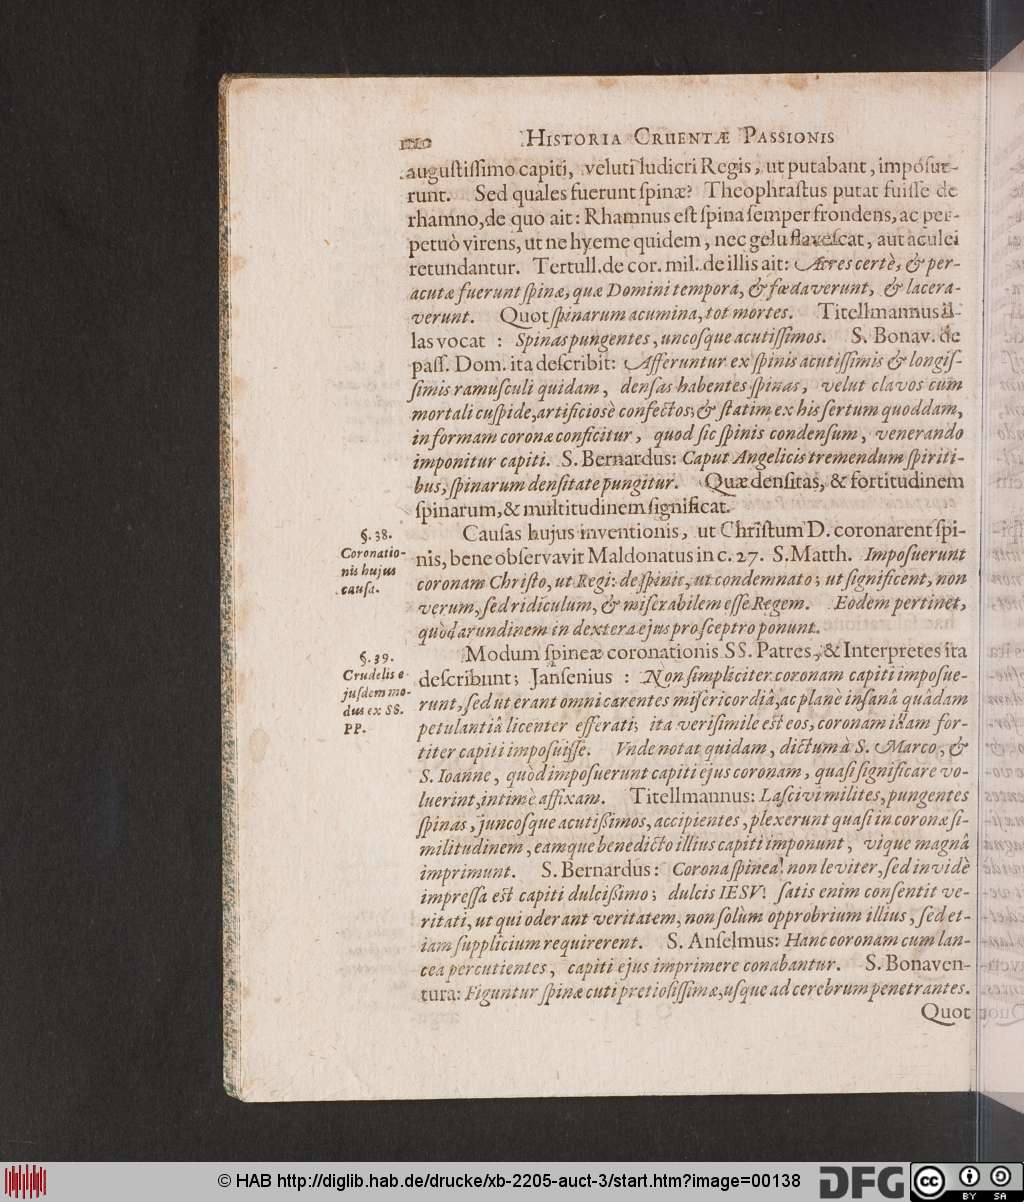 HISTORIA CRUENTÆ PASSIONIS
augustissimo capiti, veluti ludicri Regis, ut putabant, imposue-
runt. Sed quales fuerunt spinæ? Theophrastus putat fuisse de
rhamno, de quo ait: Rhamnus est spina semper frondens, ac per-
petuò virens, ut ne hyeme quidem, nec gelu flavescat, aut aculei
retundantur. Tertull. de cor. mil. de illis ait: Acres certè, & per-
acutæ fuerunt spinæ, quæ Domini tempora, & fœdaverunt, & lacera-
verunt. Quot spinarum acumina, tot mortes. Titelmannus il-
las vocat : Spinas pungentes, uncosque acutissimos. S. Bonav. de
pass. Dom. ita describit: Afferuntur ex spinis acutissimis & longis-
simis ramusculi quidam, densas habentes spinas, velut clavos cum
mortali cuspide, artificiosè confectos; & statim ex his sertum quoddam,
in formam coronæ conficitur, quod sic spinis condensum, venerando
imponitur capiti. S. Bernardus: Caput Angelicis tremendum spiriti-
bus, spinarum densitate pungitur. Quæ densitas, & fortitudinem
spinarum, & multitudinem significat.
§. 38.
Coronatio-
nis hujus
causa.
Causas hujus inventionis, ut Christum D. coronarent spi-
nis, bene observavit Maldonatus in c. 27. S. Matth. Imposuerunt
coronam Christo, ut Regi: de spinis, ut condemnato; ut significent, non
verum, sed ridiculum, & miserabilem esse Regem. Eodem pertinet,
quòd arundinem in dextera ejus pro sceptro ponunt.
§. 39.
Crudelis e-
jusdem mo-
dus ex SS.
PP.
Modum spineæ coronationis SS. Patres, & Interpretes ita
describunt; Jansenius : Non simpliciter coronam capiti imposue-
runt, sed ut erant omni carentes misericordiâ, ac planè insanâ quâdam
petulantiâ licenter efferati; ita verisimile est eos, coronam illam for-
titer capiti imposuisse. Vnde notat quidam, dictum à S. Marco, &
S. Ioanne, quòd imposuerunt capiti ejus coronam, quasi significare vo-
luerint, intimè affixam. Titellmannus: Lascivi milites, pungentes
spinas, juncosque acutißimos, accipientes, plexerunt quasi in coronæ si-
militudinem, eamque benedicto illius capiti imponunt, vique magnâ
imprimunt. S. Bernardus: Corona spinea! non leviter, sed invidè
impressa est capiti dulcißimo; dulcis IESV! satis enim consentit ve-
ritati, ut qui oderant veritatem, non solùm opprobrium illius, sed et-
iam supplicium requirerent. S. Anselmus: Hanc coronam cum lan-
cea percutientes, capiti ejus imprimere conabantur. S. Bonaven-
tura: Figuntur spinæ cuti pretiosissimæ, usque ad cerebrum penetrantes.
Quot
© HAB http://diglib.hab.de/drucke/xb-2205-auct-3/start.htm?image=00138
DFG
cc
BY SA